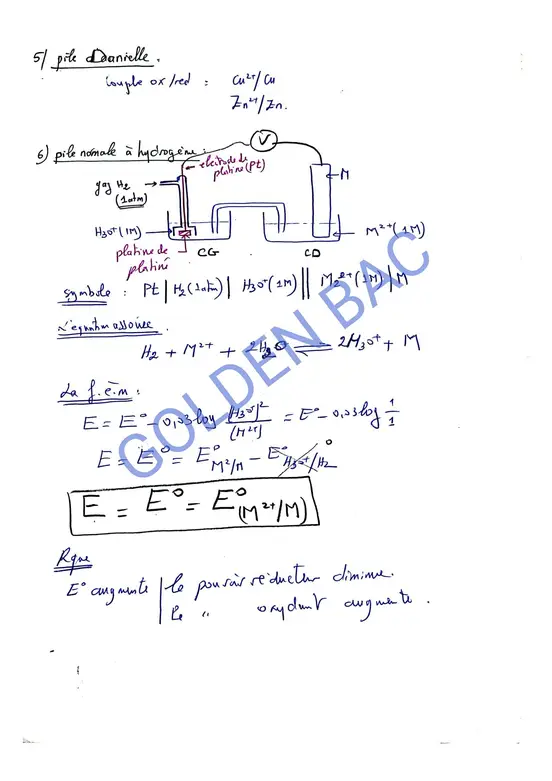 5/ pile Danielle.
couple ox/red : Cu²⁺/Cu
Zn²⁺/Zn.
6) pile normale à hydrogène :
V
électrode de
platine (Pt)
M
gaz H₂
(1 atm)
H₃O⁺ (1M)
M²⁺ (1M)
platine de
platiné
CG
CD
Symbole : Pt | H₂ (1 atm) | H₃O⁺ (1M) || M²⁺ (1M) | M
L'équation associée.
H₂ + M²⁺ + 2H₂O ⇌ 2H₃O⁺ + M
La f.é.m :
E = E° - 0,03 log [H₃O⁺]²/[M²⁺] = E° - 0,03 log 1/1
E = E° = E°M²⁺/M - E°H₃O⁺/H₂ 0
E = E° = E°(M²⁺/M)
Rque
E° augmente | le pouvoir réducteur diminue.
le " oxydant augmente.
GOLDEN BAC